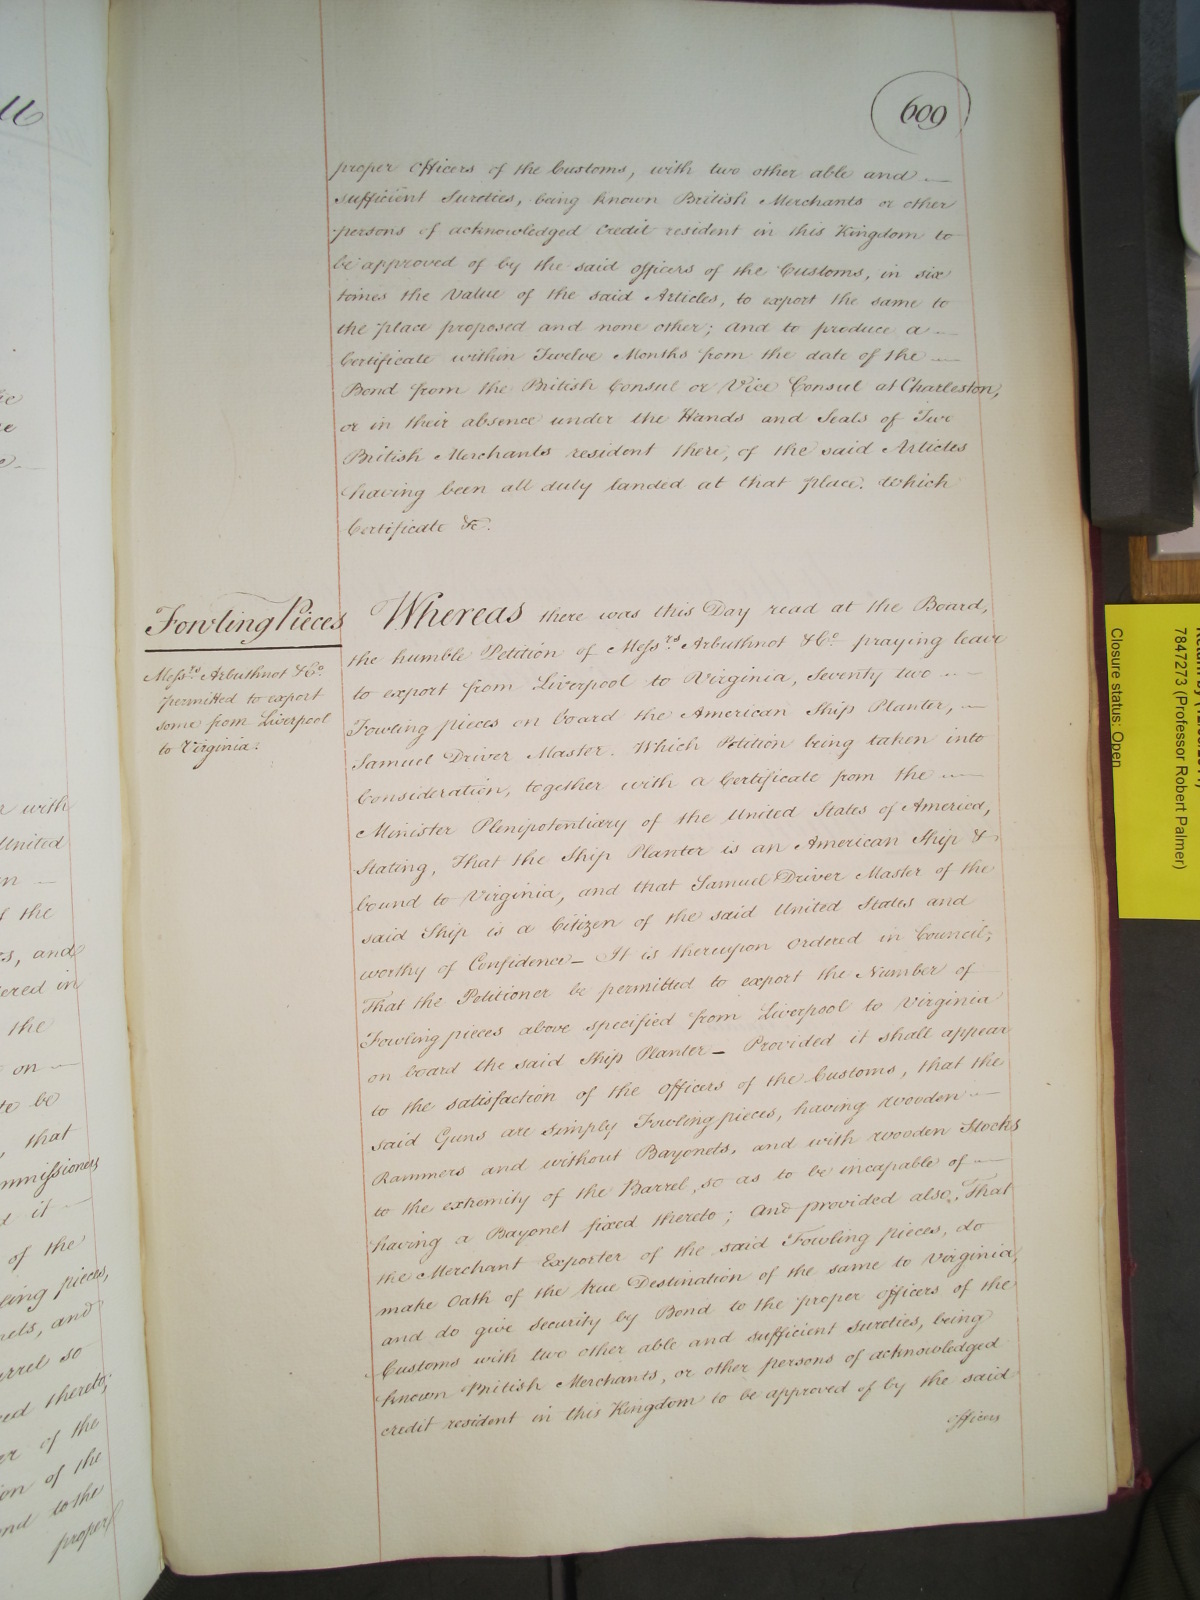 609
proper Officers of the Customs, with two other able and
sufficient Sureties, being known British Merchants or other
persons of acknowledged credit resident in this Kingdom to
be approved of by the said officers of the Customs, in six
times the Value of the said Articles, to export the same to
the place proposed and none other; and to produce a
Certificate within Twelve Months from the date of the
Bond from the British Consul or Vice Consul at Charleston,
or in their absence under the Hands and Seals of Two
British Merchants resident there, of the said Articles
having been all duly landed at that place. Which
Certificate &c.
Fowling Pieces
Messrs Arbuthnot & Co.
permitted to export
some from Liverpool
to Virginia.
Whereas there was this Day read at the Board,
the humble Petition of Messrs. Arbuthnot & Co. praying leave
to export from Liverpool to Virginia, Seventy two
Fowling pieces on board the American Ship Planter,
Samuel Driver Master. Which Petition being taken into
Consideration, together with a Certificate from the
Minister Plenipotentiary of the United States of America,
Stating, That the Ship Planter is an American Ship &
bound to Virginia, and that Samuel Driver Master of the
said Ship is a Citizen of the said United States and
worthy of Confidence_ It is thereupon ordered in Council;
That the Petitioner be permitted to export the Number of
Fowling pieces above specified from Liverpool to Virginia
on board the said Ship Planter_ Provided it shall appear
to the satisfaction of the officers of the Customs, that the
said Guns are simply Fowling pieces, having wooden
Rammers and without Bayonets, and with wooden Stocks
to the extremity of the Barrel, so as to be incapable of
having a Bayonet fixed thereto; And provided also, That
the Merchant Exporter of the said Fowling pieces, do
make Oath of the true Destination of the same to Virginia,
and do give security by Bond to the proper officers of the
Customs with two other able and sufficient sureties, being
known British Merchants, or other persons of acknowledged
credit resident in this Kingdom to be approved of by the said
officers
with
United
the
and
the
on
be
that
it
of the
pieces,
and
so
thereto;
of the
of the
to the
proper
7847273 (Professor Robert Palmer)
Closure status: Open